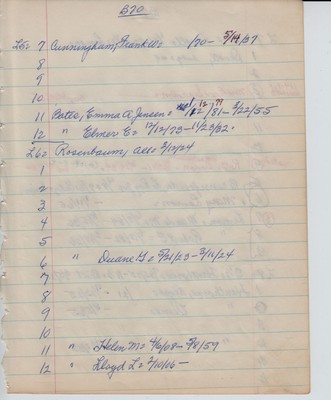 B70
L5= 7 Cunningham, Frank W= /70- 5/14/27
8
9
10
11 Potts, Emma A Jensen= /81- 3/22/55
12 " Elmer E= 12/12/73-11/23/32.
L6= Rosenbaum, All= 3/17/24
1
2
3
4
5
6 " Duane G= 5/21/23-3/11/24
7
8
9
10
11 " Helen M= 4/6/08- 5/8/59
12 " Lloyd L= 2/10/06-